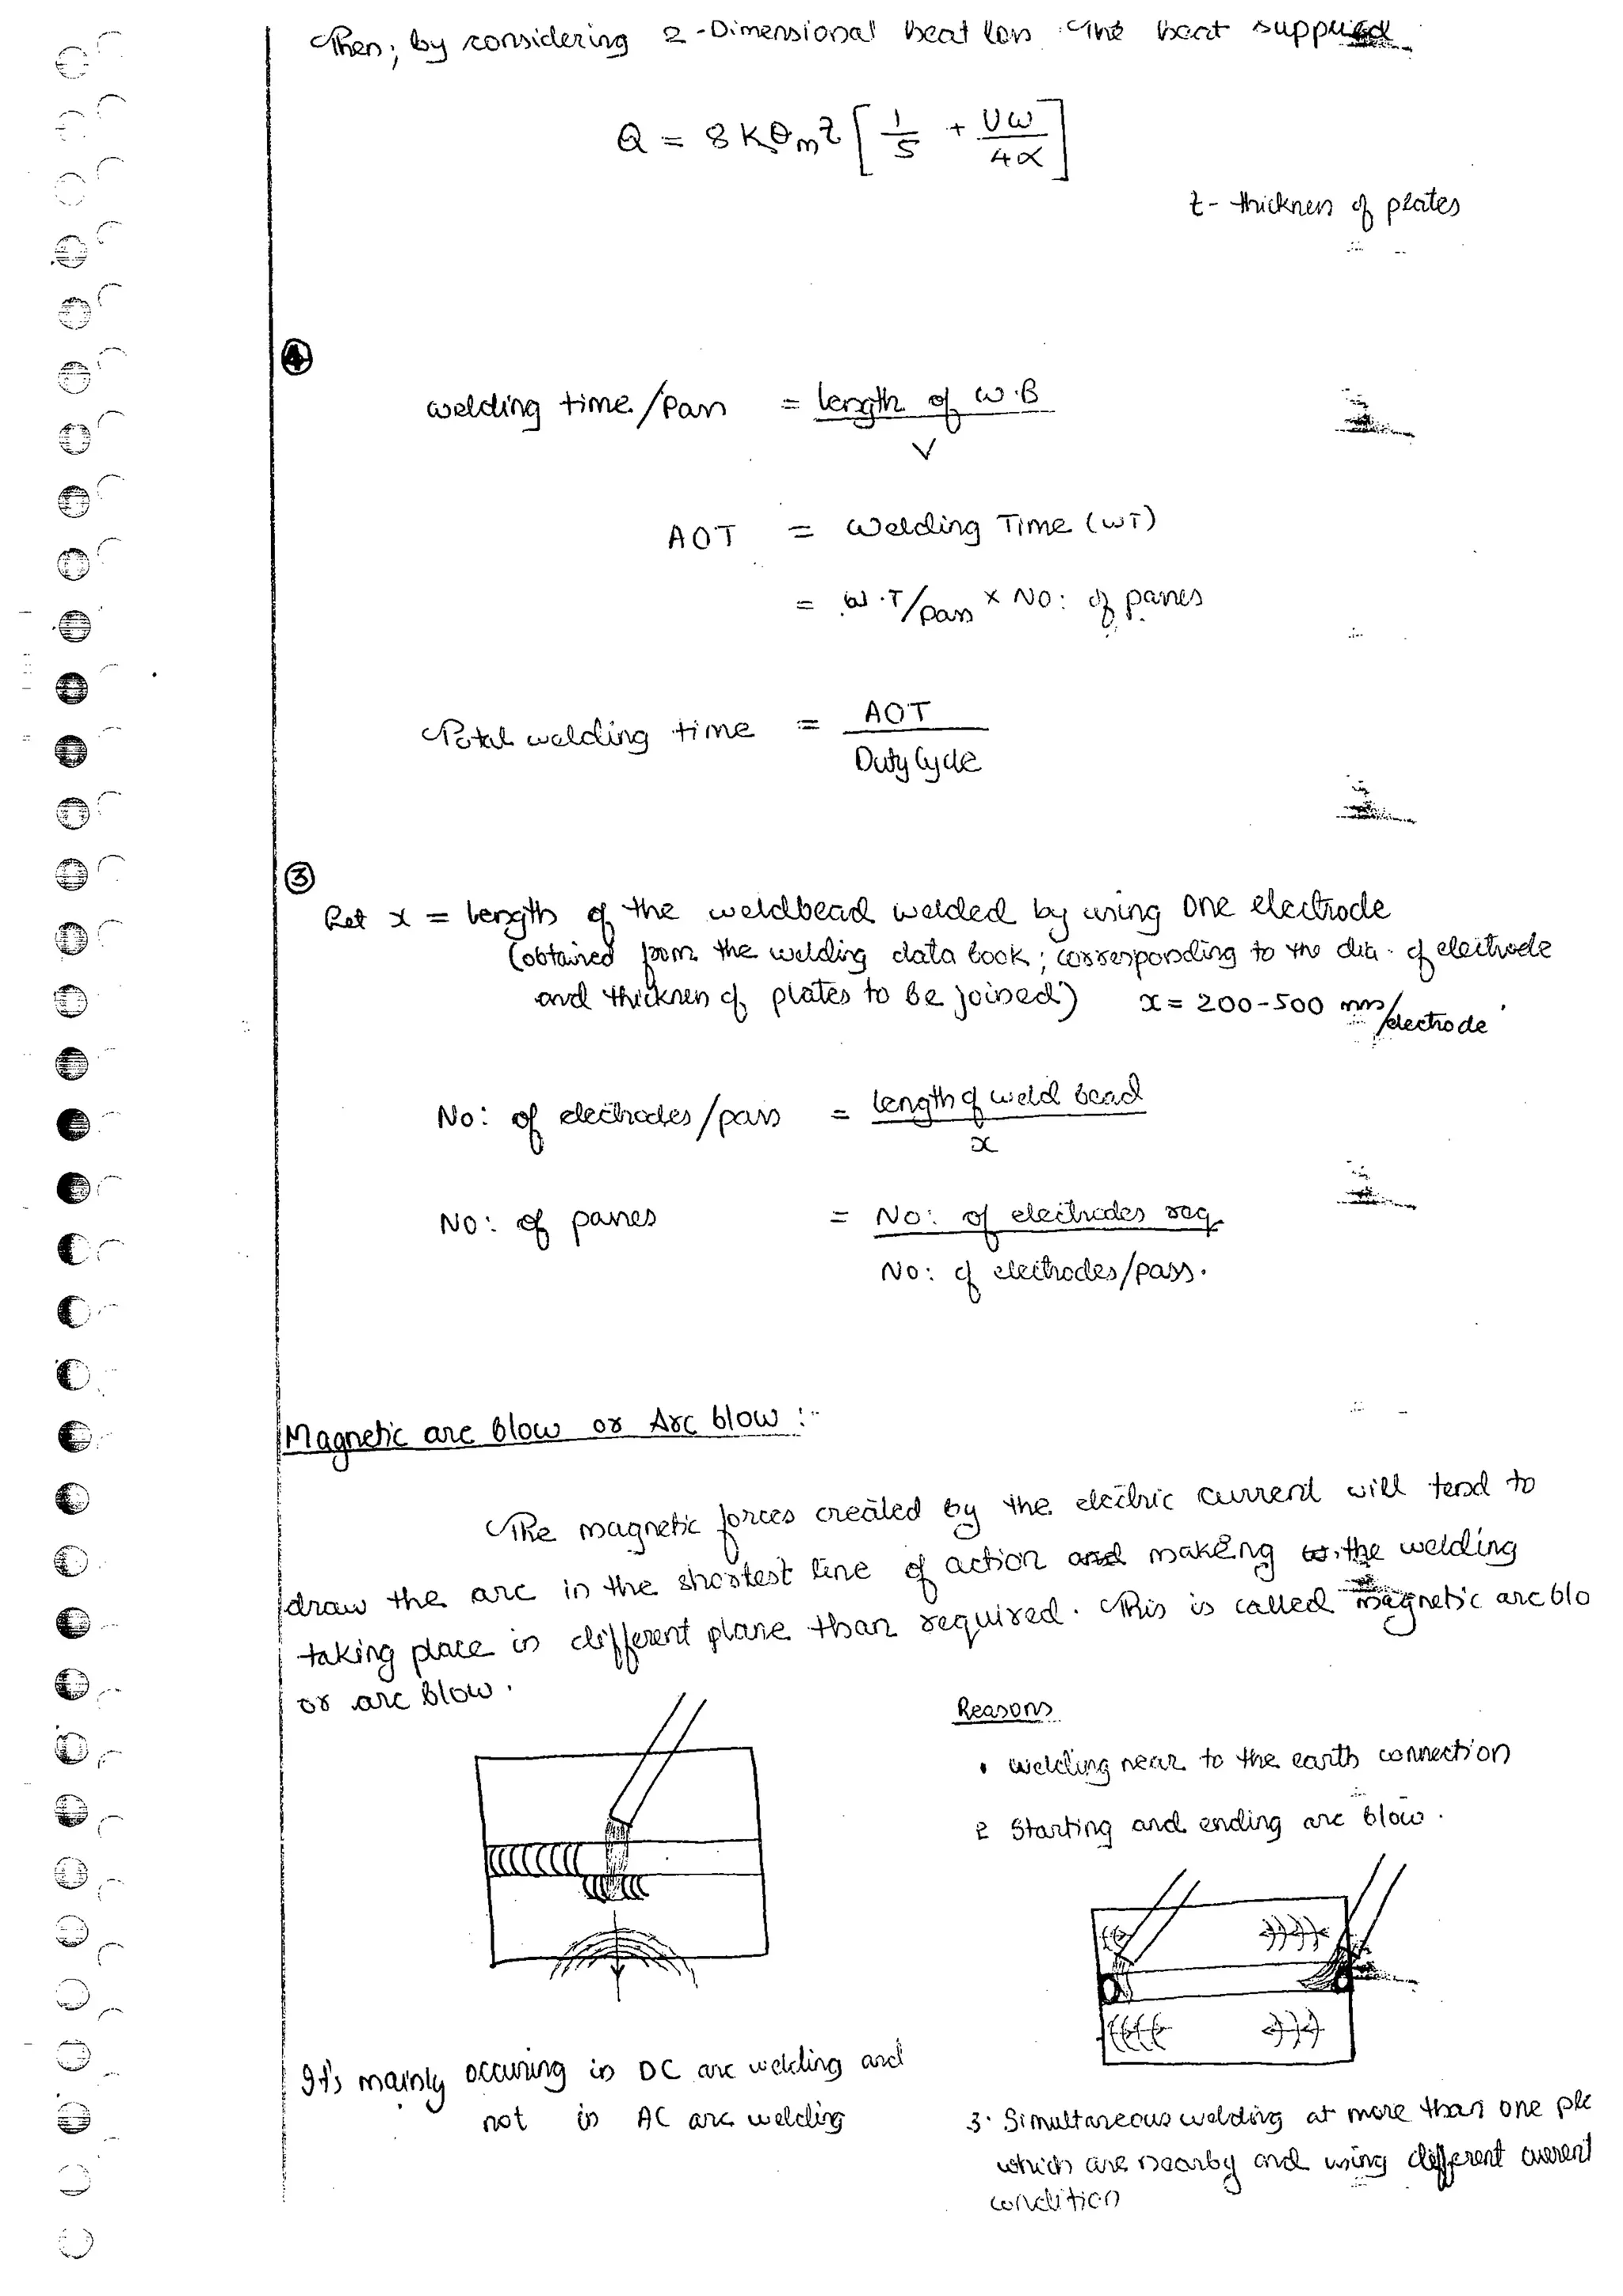 Then; by considering 2-Dimensional heat loss. The heat supplied
Q = 8Kθₘt [ 1/5 + Vω/4α ]
t - thickness of plates
④
welding time/pass = length of W.B / V
AOT = Welding Time (WT)
= W.T/pass × No: of passes
Total welding time = AOT / Duty Cycle
③
Let x = length of the weldbead welded by using one electrode
(obtained from the welding data book; corresponding to the dia. of electrode
and thickness of plates to be joined) x = 200-500 mm/electrode
No: of electrodes/pass = length of weld bead / x
No: of passes = No: of electrodes req / No: of electrodes/pass.
Magnetic arc blow or Arc blow :-
The magnetic forces created by the electric current will tend to
draw the arc in the shortest line of action and making the welding
taking place in different plane than required. This is called magnetic arc blo
or arc blow.
Reasons
• welding near to the earth connection
2 Starting and ending arc blow.
It's mainly occuring in DC arc welding and
not in AC arc welding
3. Simultaneous welding at more than one plc
which are nearby and using different current
condition